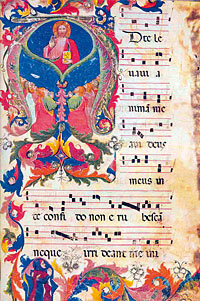 D te le
uaui a
nimam me
am deus
meus in
te confi do non e ru besca
neque irri deant me ini